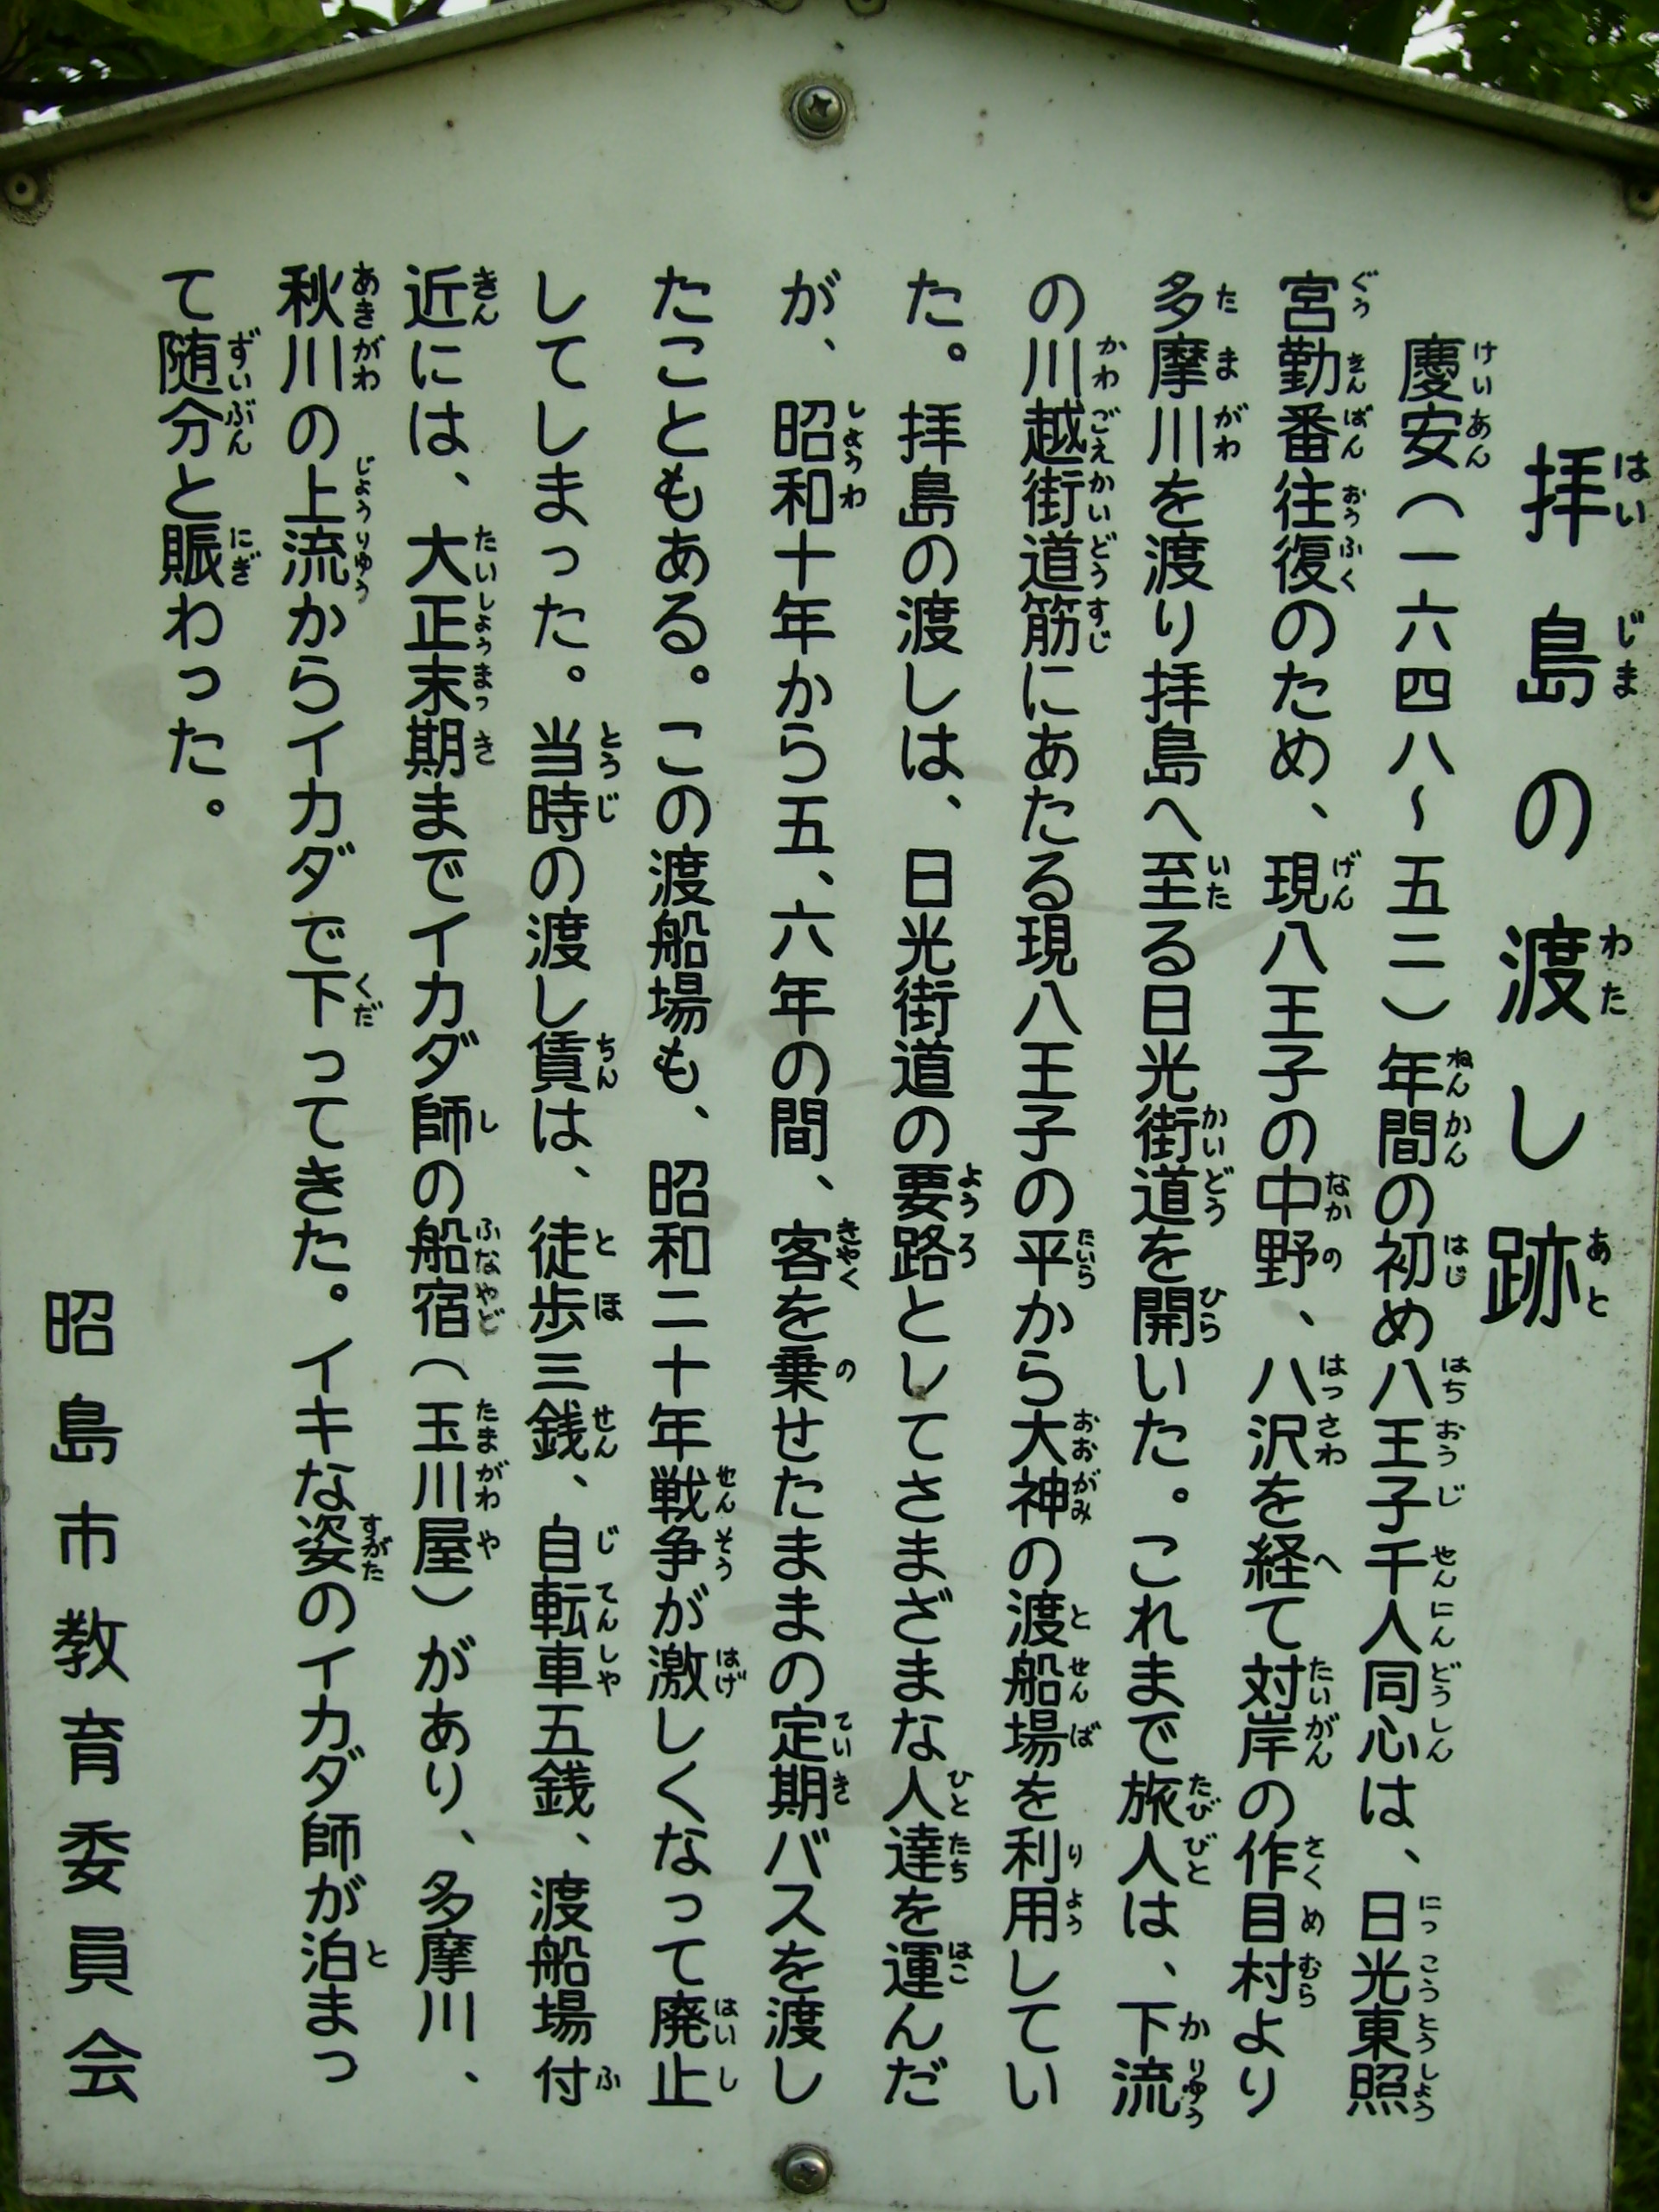 拝島の渡し跡
慶安(一六四八〜五二)年間の初め八王子千人同心は、日光東照
宮勤番往復のため、現八王子の中野、八沢を経て対岸の作目村より
多摩川を渡り拝島へ至る日光街道を開いた。これまで旅人は、下流
の川越街道筋にあたる現八王子の平から大神の渡船場を利用してい
た。拝島の渡しは、日光街道の要路としてさまざまな人達を運んだ
が、昭和十年から五、六年の間、客を乗せたままの定期バスを渡し
たこともある。この渡船場も、昭和二十年戦争が激しくなって廃止
してしまった。当時の渡し賃は、徒歩三銭、自転車五銭、渡船場付
近には、大正末期までイカダ師の船宿(玉川屋)があり、多摩川、
秋川の上流からイカダで下ってきた。イキな姿のイカダ師が泊まっ
て随分と賑わった。
昭島市教育委員会